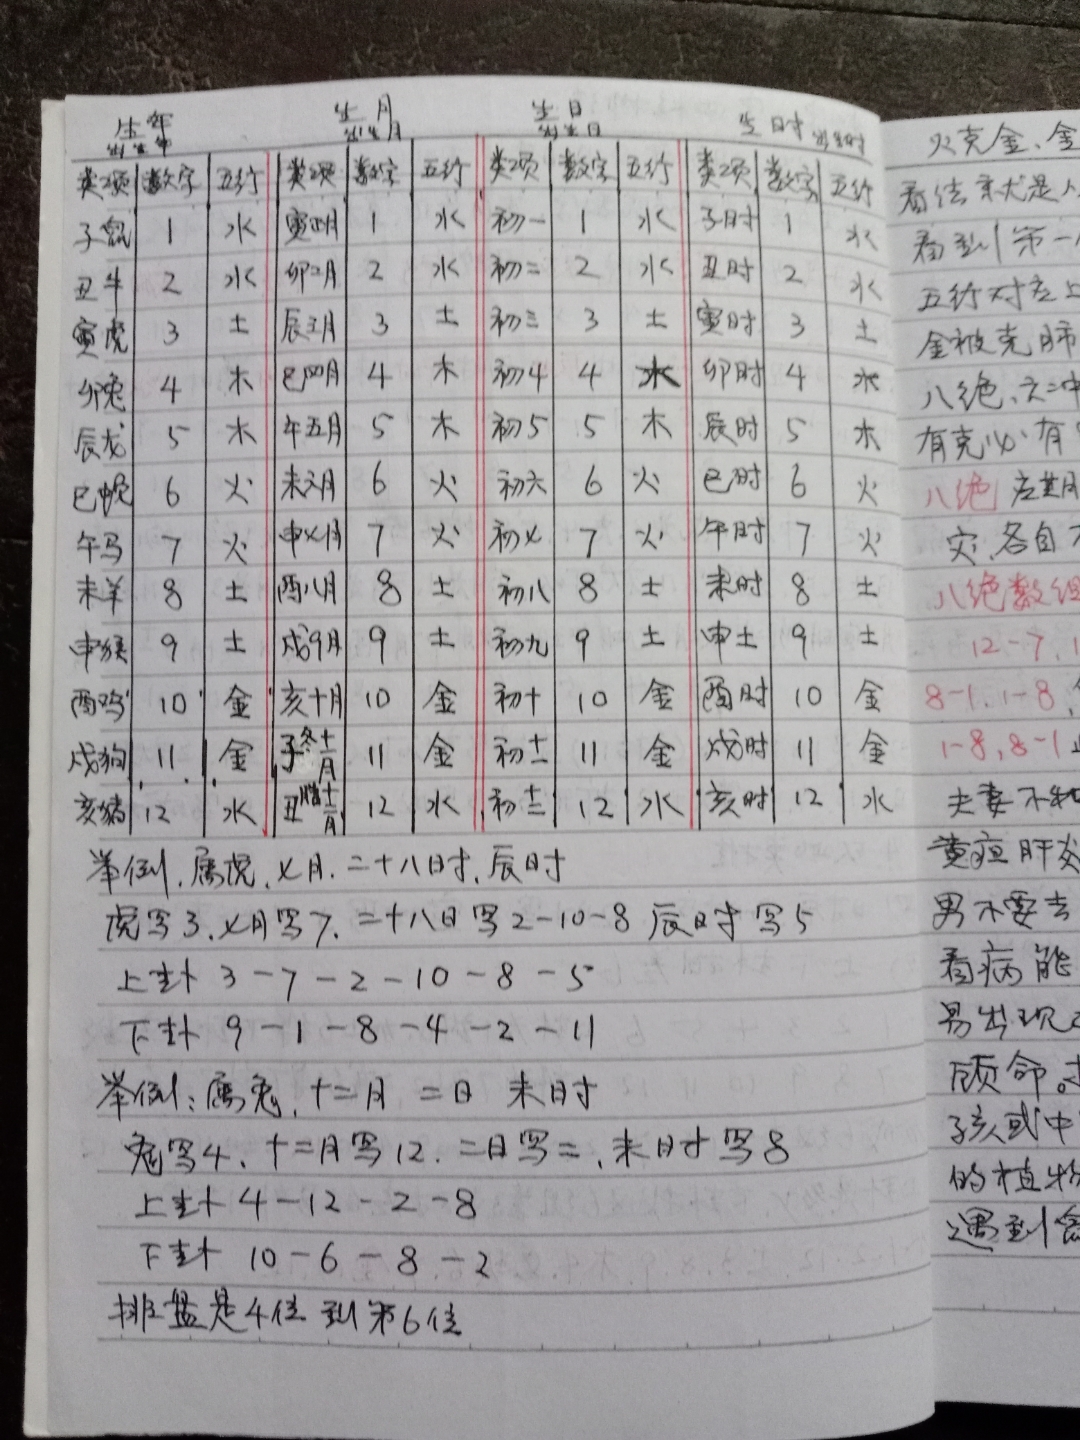 生年 生月 生日 生时
出生年 出生月 出生日 出生时
类项 数字 五行 类项 数字 五行 类项 数字 五行 类项 数字 五行
子鼠 1 水 寅正月 1 水 初一 1 水 子时 1 水
丑牛 2 水 卯二月 2 水 初二 2 水 丑时 2 水
寅虎 3 土 辰三月 3 土 初三 3 土 寅时 3 土
卯兔 4 木 巳四月 4 木 初4 4 木 卯时 4 木
辰龙 5 木 午五月 5 木 初5 5 木 辰时 5 木
巳蛇 6 火 未六月 6 火 初六 6 火 巳时 6 火
午马 7 火 申七月 7 火 初七 7 火 午时 7 火
未羊 8 土 酉八月 8 土 初八 8 土 未时 8 土
申猴 9 土 戌9月 9 土 初九 9 土 申土 9 土
酉鸡 10 金 亥十月 10 金 初十 10 金 酉时 10 金
戌狗 11 金 子冬十一月 11 金 初十一 11 金 戌时 11 金
亥猪 12 水 丑腊十二月 12 水 初十二 12 水 亥时 12 水
举例.属虎.七月.二十八日时.辰时
虎写3.七月写7.二十八日写2-10-8 辰时写5
上卦 3-7-2-10-8-5
下卦 9-1-8-4-2-11
举例:属兔,十二月 二日 未时
兔写4、十二月写12.二日写二.未时写8
上卦4-12-2-8
下卦 10-6-8-2
排盘是4位到第6位
火克金、金
看法就是人
看到第一
五行对应上
金被克肺
八绝、六二中
有克必有
八绝应期
灾.各自
八绝数组
12-7,1
8-1.1-8,
1-8,8-1
夫妻不和
黄疸肝炎
男不要去
看病能
易出现
顾命。
孩或中
的植物
遇到